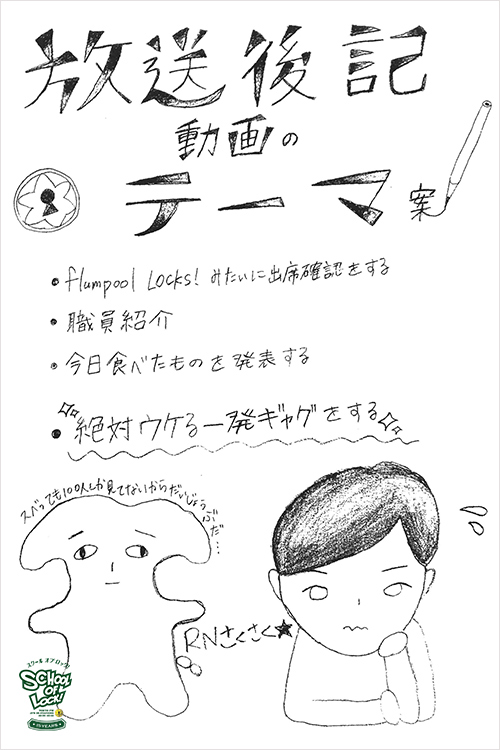 放送後記
動画の
テーマ案
・flumpool LOCKS! みたいに出席確認をする
・職員紹介
・今日食べたものを発表する
・絶対ウケる一発ギャグをする
スベっても100人しか見てないからだいじょうぶだ…
RNさくさく★
スクール オブ ロック!
SCHOOL OF LOCK!